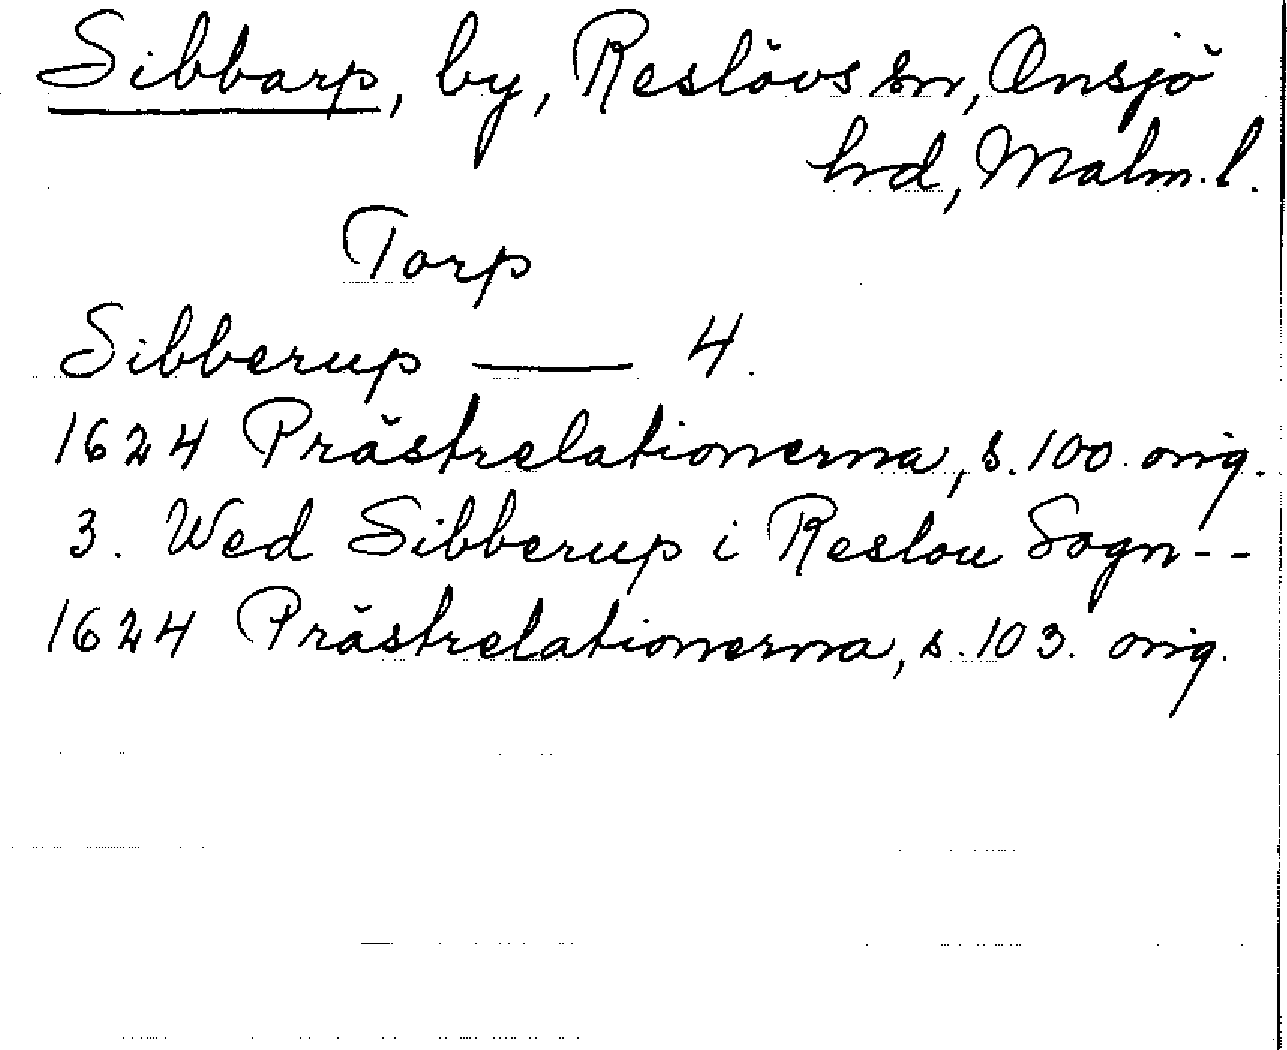 Sibbarp, by, Reslövs sn, Onsjö
hd, Malm. l.
Torp
Sibberup — 4.
1624 Prästrelationerna, s. 100. orig.
3. Wed Sibberup i Reslou Sogn--
1624 Prästrelationerna, s. 103. orig.